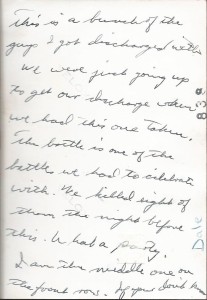 This is a bunch of the
guys I got discharged with.
We were just going up
to get our discharge when
we had this one taken.
The bottle is one of the
bottles we had to celebrate
with. We killed eight of
them the night before
this. U had a party.
I am the middle one on
the front row. If you don't know
838
Dale